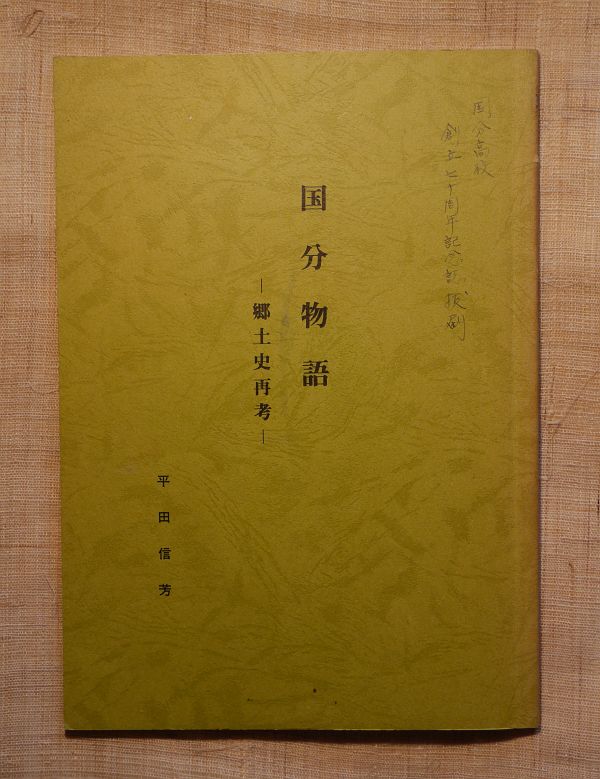 国分高校
創立七十周年記念誌抜刷
国分物語
―郷土史再考―
平田信芳